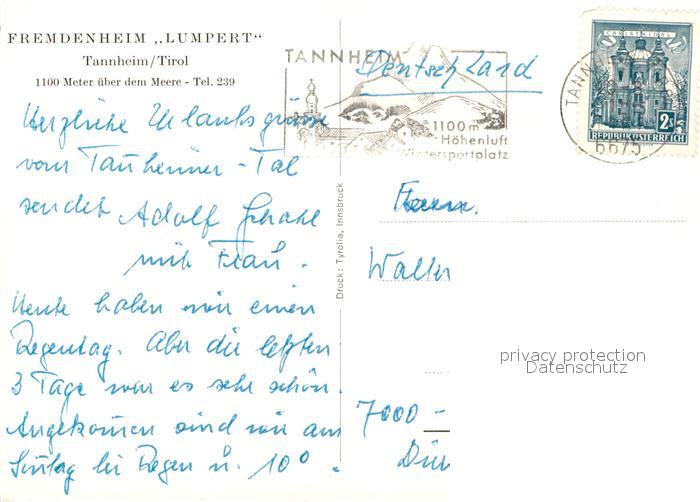 FREMDENHEIM „LUMPERT"
Tannheim/Tirol
1100 Meter über dem Meere - Tel. 239
Herzliche Urlaubsgrüsse
vom Tanheimer - Tal
sendet Adolf
mit Frau.
Heute haben wir einen
Regentag. Aber die letzten
3 Tage war es sehr schön.
Angekommen sind wir am
Sontag bei Regen u. 10°.
Druck: Tyrolia, Innsbruck
TANNHEIM
1100m
Höhenluft
Wintersportplatz
TANNH
6675
CHRISTKINDL
2S
REPUBLIK ÖSTERREICH
Deutschland
Herrn.
Walter
7000 -
privacy protection
Datenschutz